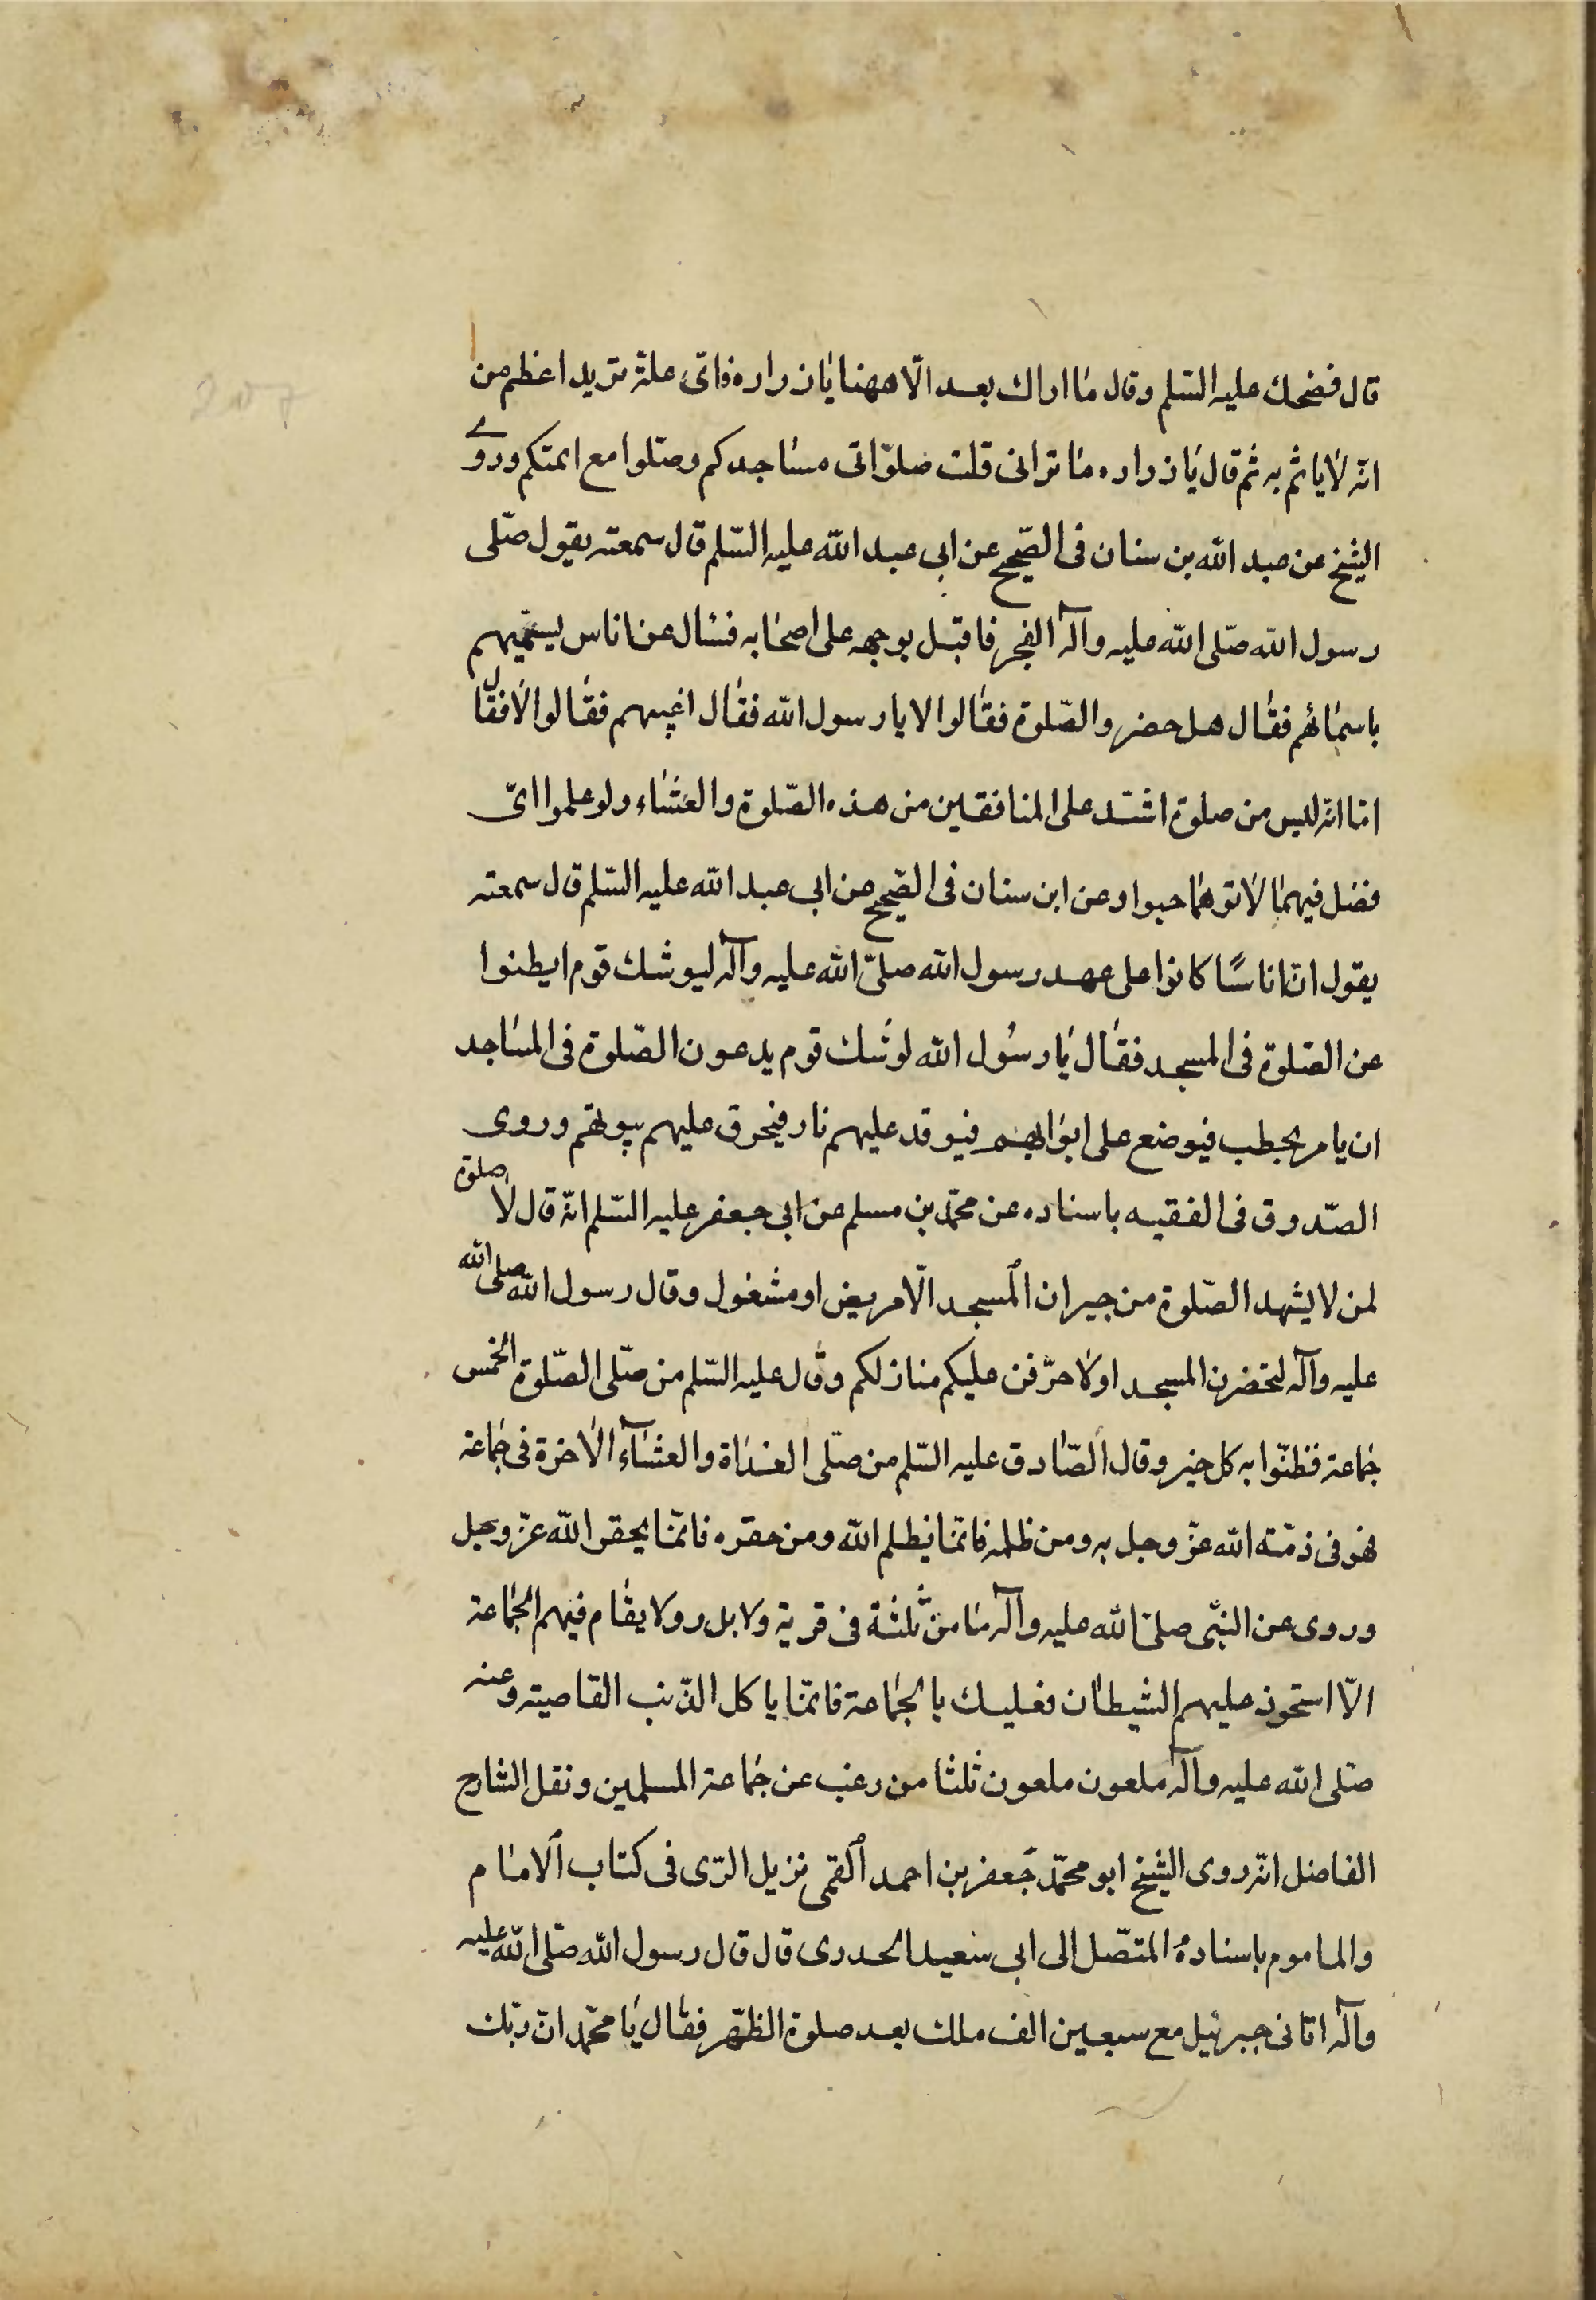 قال فضحك عليه السّلم وقال ما اراك بعد الّا ههنا يا زراره فاىّ علّة تريد اعظم من
انّه لا ياتم به ثم قال يا زراره ما ترانى قلت صلوا فى مساجدكم وصلوا مع ائمتكم وروى
الشيخ عن عبد الله بن سنان فى الصّحيح عن ابى عبد الله عليه السّلم قال سمعته يقول صلّى
رسول الله صلّى الله عليه وآله الفجر فاقبل بوجهه على اصحابه فسال عن اناس يسمّيهم
باسمائهم فقال هل حضروا الصّلوة فقالوا لا يا رسول الله فقال اغيّب هم فقالوا لا فقال
اما انّه ليس من صلوة اشدّ على المنافقين من هذه الصّلوة والعشاء ولو علموا اىّ
فضل فيهما لاتوهما حبوا وعن ابن سنان فى الصّحيح عن ابى عبد الله عليه السّلم قال سمعته
يقول انّ اناسًا كانوا على عهد رسول الله صلّى الله عليه وآله ليوشك قوم ابطنوا
عن الصّلوة فى المسجد فقال يا رسول الله لوشك قوم يدعون الصّلوة فى المساجد
ان يامر بحطب فيوضع على ابوابهم فيوقد عليهم نار فيحرق عليهم بيوتهم وروى
الصّدوق فى الفقيه باسناده عن محمّد بن مسلم عن ابى جعفر عليه السّلم انّه قال لا صلوة
لمن لا يشهد الصّلوة من جيران المسجد الّا مريض او مشغول وقال رسول الله صلى الله
عليه وآله لتحضرن المسجد او لاحرّقن عليكم منازلكم وقال عليه السّلم من صلّى الصّلوة الخمس
جماعة فظنّوا به كل خير وقال الصّادق عليه السّلم من صلّى الغداة والعشآء الاخرة فى جماعة
فهو فى ذمّته الله عزّ وجل به ومن ظلمه فانّما يظلم الله ومن حقره فانّما يحقر الله عزّ وجل
وروى عن النبّى صلىّ الله عليه وآله ما من ثلثة فى قرية ولا بدر ولا يقام فيهم الجماعة
الّا استحوذ عليهم الشيطان فعليك بالجماعة فانّما ياكل الذّئب القاصيته وعنه
صلّى الله عليه وآله ملعون ملعون ثلثا من رغب عن جماعة المسلمين ونقل الشارح
الفاضل انّه روى الشيخ ابو محمّد جعفر بن احمد القمى نزيل الرّى فى كتاب الامام
والماموم باسناده المتصّل الى ابى سعيد الحدرى قال قال رسول الله صلّى الله عليه
وآله اتانى جبرئيل مع سبعين الف ملك بعد صلوة الظّهر فقال يا محمّد انّ ربّك